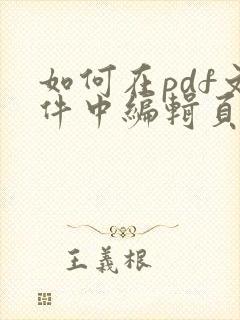 如何在pdf文
件中编辑页
王義根